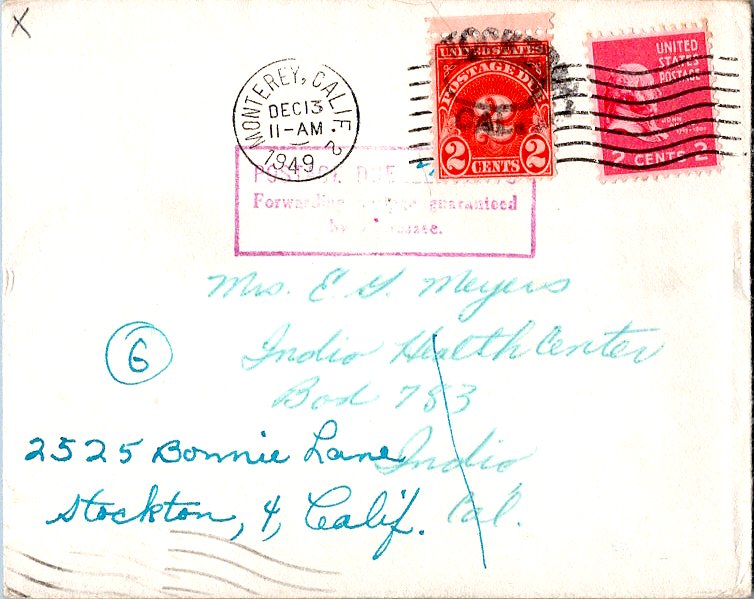 X
MONTEREY, CALIF. 2
DEC 13
11-AM
1949
UNITED STATES
POSTAGE DUE
2 CENTS 2
CAL.
UNITED
STATES
POSTAGE
JOHN
2 CENTS 2
POSTAGE DUE
Forwarding guaranteed
by
Mrs. E G. Meyers
6
Indio Health Center
Box 783
2525 Bonnie Lane
Indio
Stockton, 4, Calif.
Cal.